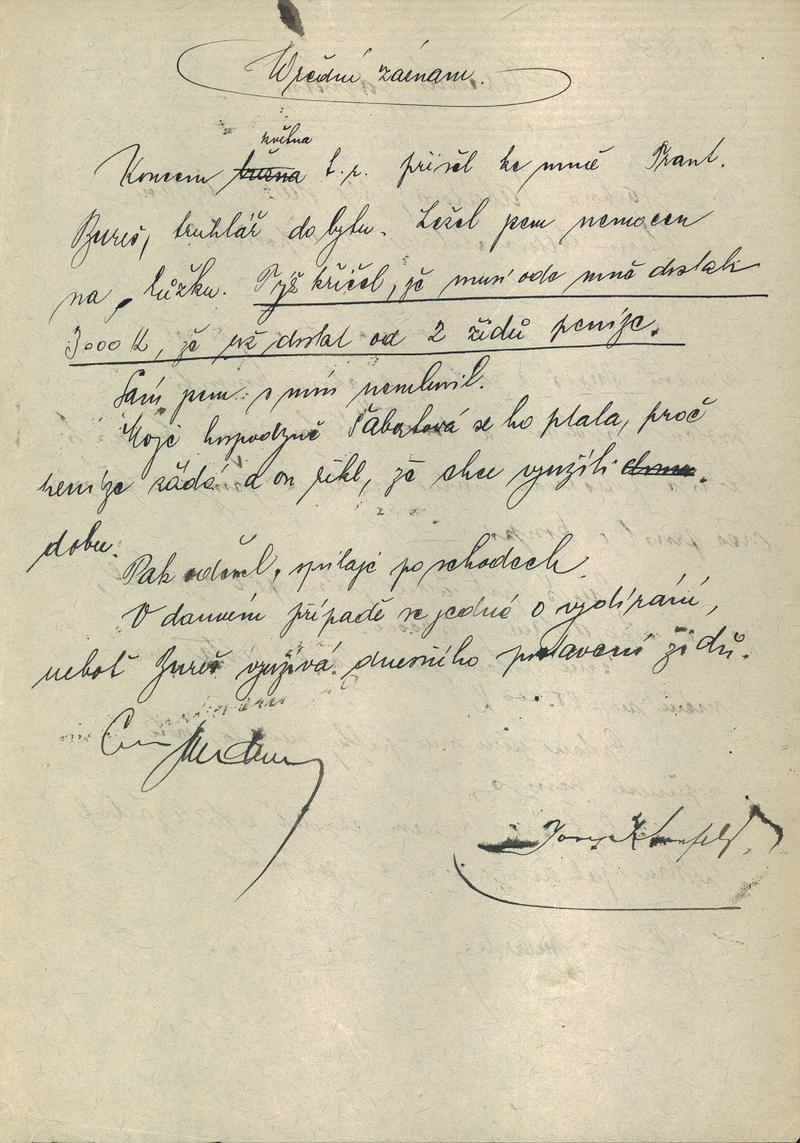 Úřední záznam.
května
Koncem března t.r. přišel ke mně Frant.
Bureš, truhlář do bytu. Ležel jsem nemocen
na lůžku. Týž křičel, že musí ode mně dostati
3000 K, že už dostal od 2 židů peníze.
Sám jsem s ním nemluvil.
Moje hospodyně se ho ptala, proč
peníze žádá a on řekl, že chce využíti
dobu.
Pak odešel, spílaje po schodech
V daném případě se jedná o vydírání,
neboť Bureš využívá dnešního postavení židů.
Josef